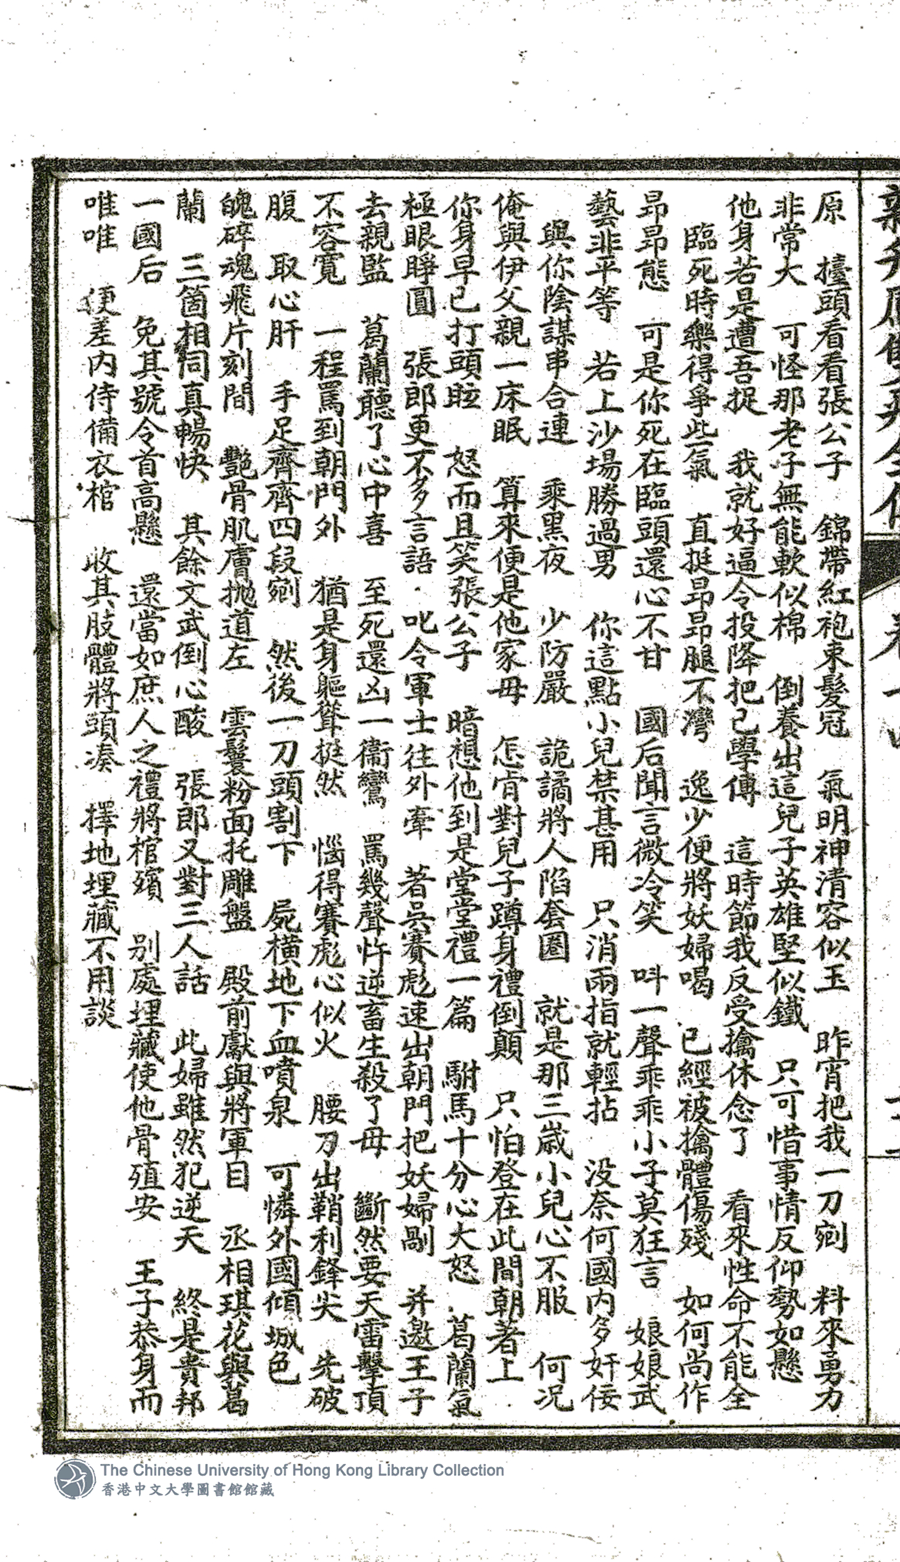 原　擡頭看看張公子　錦帶紅袍束髮冠　氣明神清容似玉　昨宵把我一刀剜　料來勇力
非常大　可怪那老子無能軟似棉　倒養出這兒子英雄堅似鐵　只可惜事情反仰勢如懸
他身若是遭吾捉　我就好逼令投降把己學傅　這時節我反受擒休念了　看來性命不能全
臨死時樂得爭些氣　直挺昂昂腿不灣　逸少便將妖婦喝　已經被擒體傷殘　如何尚作
昂昂態　可是你死在臨頭還心不甘　國后聞言微冷笑　呌一聲乖乖小子莫狂言　娘娘武
藝非平等　若上沙場勝過男　你這點小兒禁甚用　只消兩指就輕拈　没奈何國內多奸佞
與你陰謀串合連　乘黑夜　少防嚴　詭譎將人陷套圈　就是那三歲小兒心不服　何况
俺與伊父親一床眠　算來便是他家母　怎肯對兒子蹲身禮倒顛　只怕登在此間朝著上
你身早已打頭眩　怒而且笑張公子　暗想他到是堂堂禮一篇　駙馬十分心大怒　葛蘭氣
極眼睜圓　張郎更不多言語　叱令軍士往外牽　著吳賽彪速出朝門把妖婦剮　并邀王子
去親監　葛蘭聽了心中喜　至死還凶一衞鸞　罵幾聲忤逆畜生殺了母　斷然要天雷擊頂
不容寛　一程罵到朝門外　猶是身軀聳挺然　惱得賽彪心似火　腰刀出鞘利鋒尖　先破
腹　取心肝　手足齊齊四段剜　然後一刀頭割下　屍橫地下血噴泉　可憐外國傾城色
魄碎魂飛片刻間　艷骨肌膚抛道左　雲鬟粉面托雕盤　殿前獻與將軍目　丞相琪花與葛
蘭　三箇相同真暢快　其餘文武倒心酸　張郎又對三人話　此婦雖然犯逆天　終是貴邦
一國后　免其號令首高懸　還當如庶人之禮將棺殯　別處埋藏使他骨殖安　王子恭身而
唯唯　便差內侍備衣棺　收其肢體將頭凑　擇地埋藏不用談
The Chinese University of Hong Kong Library Collection
香港中文大學圖書館館藏